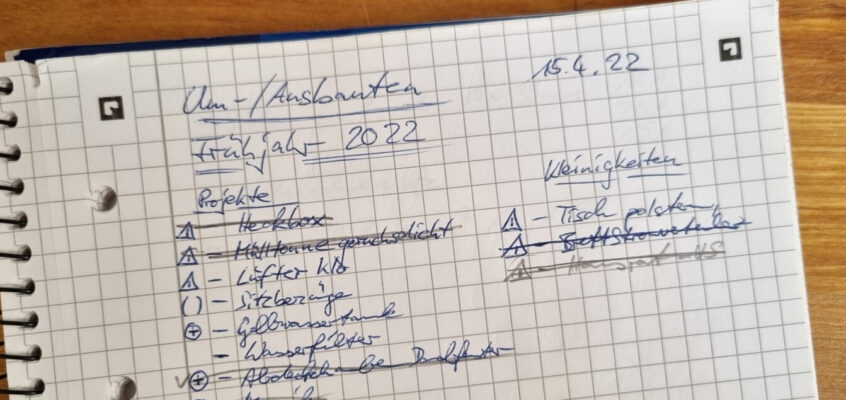 15.4.22
Um-/Ausbauten
Frühjahr 2022
Projekte
- Heckbox
- Mülltonne geruchsdicht
- Lüfter
( ) - Sitzbezüge
- Gelbwassertank
- Wasserfilter
- Abdeckhaube Dachfenster
Kleinigkeiten
- Tisch polstern